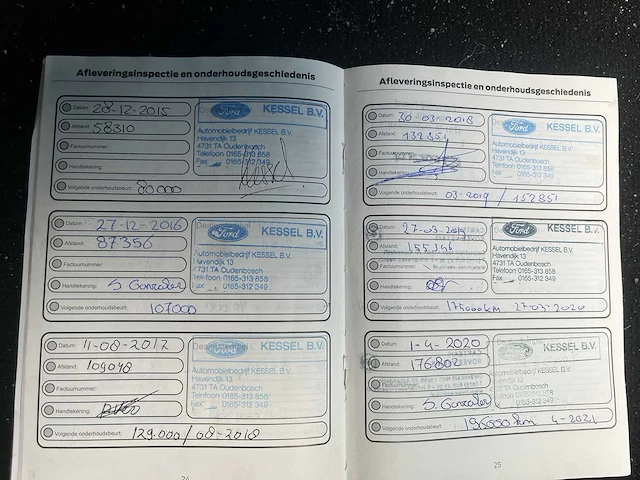 Afleveringsinspectie en onderhoudsgeschiedenis
Datum: 28-12-2015
Afstand: 58310
Factuurnummer:
Handtekening:
Volgende onderhoudsbeurt: 80000
Ford KESSEL B.V.
Automobielbedrijf KESSEL B.V.
Havendijk 13
4731 TA Oudenbosch
Telefoon 0165-313 858
Fax 0165-312 349
Datum: 27-12-2016
Afstand: 87356
Factuurnummer:
Handtekening: S. Gonzales
Volgende onderhoudsbeurt: 107000
Ford KESSEL B.V.
Automobielbedrijf KESSEL B.V.
Havendijk 13
4731 TA Oudenbosch
Telefoon 0165-313 858
Fax 0165-312 349
Datum: 11-08-2017
Afstand: 109048
Factuurnummer:
Handtekening:
Volgende onderhoudsbeurt: 129.000 / 08-2018
Dealerstempel
Ford KESSEL B.V.
Automobielbedrijf KESSEL B.V.
Havendijk 13
4731 TA Oudenbosch
Telefoon 0165-313 858
Fax 0165-312 349
Afleveringsinspectie en onderhoudsgeschiedenis
Datum: 30-03-2018
Afstand: 132851
Factuurnummer:
Handtekening:
Volgende onderhoudsbeurt: 03-2019 / 152851
Ford KESSEL B.V.
Automobielbedrijf KESSEL B.V.
Havendijk 13
4731 TA Oudenbosch
Telefoon 0165-313 858
Fax 0165-312 349
Datum: 27-03-2019
Afstand: 155346
Factuurnummer:
Handtekening:
Volgende onderhoudsbeurt: 175000km 27-03-2020
Ford KESSEL B.V.
Automobielbedrijf KESSEL B.V.
Havendijk 13
4731 TA Oudenbosch
Telefoon 0165-313 858
Fax 0165-312 349
Datum: 1-4-2020
Afstand: 176802
Factuurnummer:
Handtekening: S. Gonzales
Volgende onderhoudsbeurt: 195000 km 4-2021
KESSEL B.V.
Automobielbedrijf KESSEL B.V.
Havendijk 13
4731 TA Oudenbosch
25